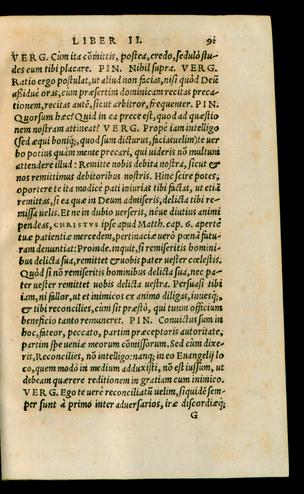 LIBER II. 91
VERG. Cùm ita cōmittis, postea, credo, sedulò stu-
des eum tibi placare. PIN. Nihil supra. VERG.
Ratio ergo postulat, ut aliud non facias, nisi quòd Deū
aßiduè oras, cùm præsertim dominicam recitas preca
tionem, recitas autē, sicut arbitror, frequenter. PIN.
Quorsum hæc? Quid in ea prece est, quod ad quæstio
nem nostram attineat? VERG. Prope iam intelligo
(sed æqui boniq́;, quod sum dicturus, facias uelim) te uer
bo potius quàm mente precari, qui uideris nō multum
attendere illud: Remitte nobis debita nostra, sicut &
nos remittimus debitoribus nostris. Hinc scire potes,
oportere te ita modicè pati iniurias tibi factas, ut etiā
remittas, si ea quæ in Deum admiseris, delicta tibi re-
missa uelis. Et ne in dubio uerseris, néue diutius animi
pendeas, CHRISTVS ipse apud Matth. cap. 6. apertè
tuæ patientiæ mercedem, pertinaciæ uerò pœnā futu
ram denuntiat: Proinde. inquit, si remiseritis homini-
bus delicta sua, remittet & uobis pater uester cœlestis.
Quòd si nō remiseritis hominibus delicta sua, nec pa-
ter uester remittet uobis delicta uestra. Persuasi tibi
iam, ni fallor, ut et inimicos ex animo diligas, iuuesq́;,
& tibi reconcilies, cùm sit præstò, qui tuum officium
beneficio tanto remuneret. PIN. Conuictus sum in
hoc, fateor, peccato, partim præceptoris autoritate,
partim spe ueniæ meorum cōmissorum. Sed cùm dixe-
ris, Reconcilies, nō intelligo: nanq; in eo Euangelij lo
co, quem modò in medium adduxisti, nō est iussum, ut
debeam quærere reditionem in gratiam cum inimico.
VERG. Ego te uerè reconciliatū uelim, siquidē sem-
per sunt à primo inter aduersarios, iræ discordiæq;
G